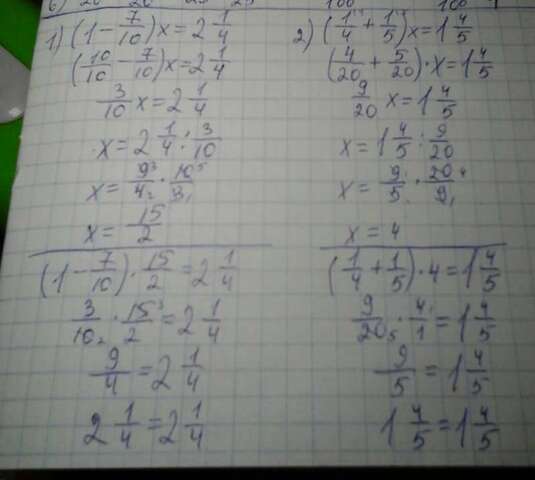 1) (1 - 7/10)x = 2 1/4
(10/10 - 7/10)x = 2 1/4
3/10 x = 2 1/4
x = 2 1/4 : 3/10
x = 9/4 · 10/3
x = 15/2
(1 - 7/10) · 15/2 = 2 1/4
3/10 · 15/2 = 2 1/4
9/4 = 2 1/4
2 1/4 = 2 1/4
2) (1/4 + 1/5)x = 1 4/5
(4/20 + 5/20) · x = 1 4/5
9/20 x = 1 4/5
x = 1 4/5 : 9/20
x = 9/5 · 20/9
x = 4
(1/4 + 1/5) · 4 = 1 4/5
9/20 · 4/1 = 1 4/5
9/5 = 1 4/5
1 4/5 = 1 4/5